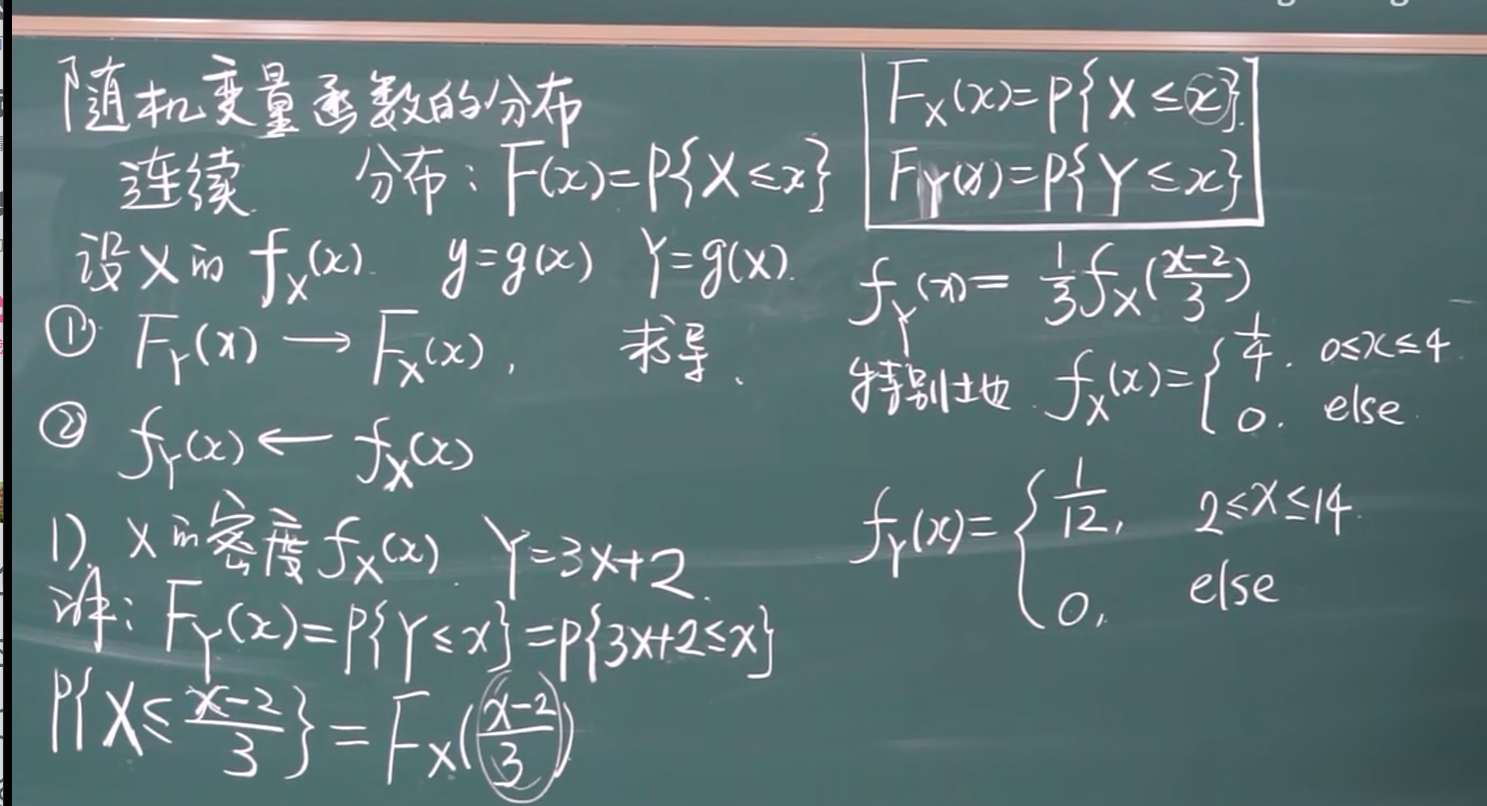 随机变量函数的分布
连续 分布：F(x)=P{X≤x}
设X的 f_X(x) y=g(x) Y=g(X).
① F_Y(x) → F_X(x)， 求导、
② f_Y(x) ← f_X(x)
1). X的密度 f_X(x). Y=3X+2.
详：F_Y(x)=P{Y≤x}=P{3X+2≤x}
P{X≤\frac{x-2}{3}}=F_X(\frac{x-2}{3})
F_X(x)=P{X≤x}.
F_Y(x)=P{Y≤x}
f_Y(x)=\frac{1}{3}f_X(\frac{x-2}{3})
特别地. f_X(x)={\frac{1}{4}. 0≤x≤4
0. else.
f_Y(x)={\frac{1}{12}, 2≤x≤14.
0, else